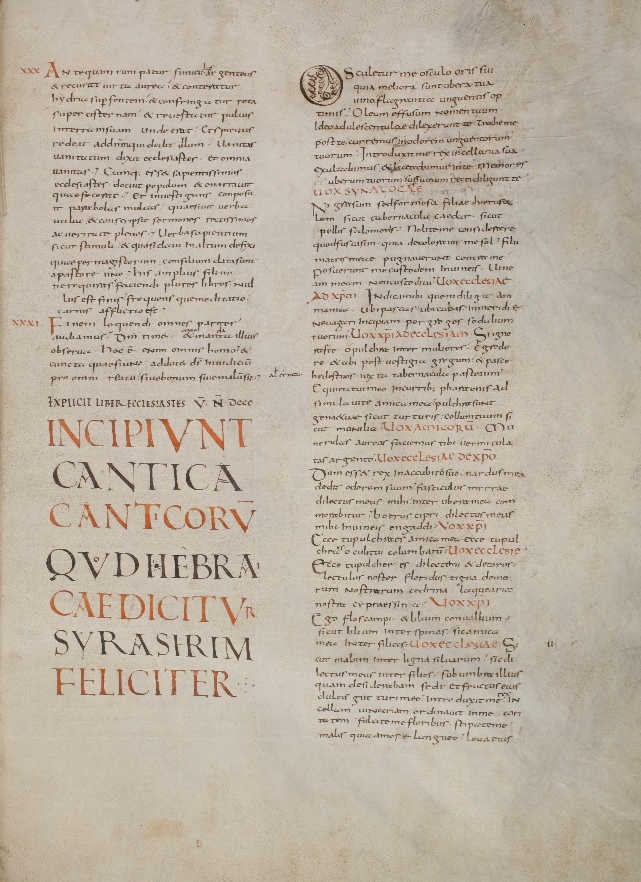 XXX ANtequam rumpatur funiculus argenteus
& recurrat vitta aurea & conteratur
hydria sup fontem & confringatur rota
super cisternam & revertatur pulvis
interram suam unde erat Et spiritus
redeat addm qui dedit illum Vanitas
vanitatum dixit ecclesiastes et omnia
vanitas Cumq. ess& sapientissimus
ecclesiastes docuit populum & enarravit
quae fecer& Et investigans composu
it parabolas multas quaesivit verba
utilia & conscripsit sermones rectissimos
ac veritate plenos Verba sapientium
sicut stimuli & quasi clavi inaltum defixi
quae per magistrorum consilium data sunt
apastore uno his amplius fili mi
ne requiras faciendi plures libros nul
lus est finis frequens quae meditatio
carnis afflictio est
XXXI Finem loquendi omnes pariter
audiamus Dm time & mandata illius
observa Hoc ē enim omnis homo &
cuncta quae fiunt adducet ds iniudicium
pro omni errato sive bonum sive malum sit
EXPLICIT LIBER ECCLESIASTES V. N. DCCC
INCIPIVNT
CANTICA
CANTICORV̄
QVOD HEBRA
CAE DICITVR
SYRASIRIM
FELICITER
OSculetur me osculo oris sui
quia meliora sunt ubera tua
vino flagrantia unguentis op
timis Oleum effusum nomen tuum
Ideo adulescentulae dilexerunt te Trahe me
post te curremus inodorem unguentorum
tuorum Introduxit me rex incellaria sua
exultabimus & laetabimur inte memores
uberum tuorum super vinum recti diligunt te
VOX SYNAGOGAE
Nigra sum sed formosa filiae hierusa
lem sicut tabernacula caedar sicut
pellis salomonis Nolite me considerare
quod fusca sim quia decoloravit me sol filii
matris meae pugnaverunt contra me
posuerunt me custodem invineis Vine
am meam non custodivi VOX ECCLESIAE
AD XPM Indica mihi quem diligit ani
ma mea ubi pascas ubi cubes inmeridie
Ne vagari incipiam per greges sodalium
tuorum VOX XPI AD ECCLESIAM Si igno
ras te o pulchra inter mulieres Egrede
re & abi post vestigia gregum & pasce
hedos tuos iuxta tabernacula pastorum
Equitatui meo incurribus pharaonis ad
similavi te amica mea pulchrae sunt
genae tuae sicut turturis collum tuum si
cut monilia VOX AMICORUM Mu
renulas aureas faciemus tibi vermicula
tas argento VOX ECCLESIAE DE XPO
Dum ess& rex inaccubitu suo nardus mea
dedit odorem suum fasciculus murrae
dilectus meus mihi inter ubera mea com
morabitur botrus cipri dilectus meus
mihi invineis engaddi VOX XPI
Ecce tu pulchra es amica mea ecce tu pul
chra oculi tui columbarum VOX ECCLESIE
Ecce tu pulcher es dilecte mi & decorus
lectulus noster floridus tigna domo
rum nostrarum cedrina laquearia
nostra cypraessina VOX XPI
Ego flos campi & lilium convallium
sicut lilium inter spinas sic amica
mea inter filias VOX ECCLESIAE Si
cut malum inter ligna silvarum sic di
lectus meus inter filios sub umbra illius
quam desideraham sedi et fructus eius
dulcis gutturi meo Introduxit me IN
cellam vinariam ordinavit inme cari
tatem fulcite me floribus stipate me
malis quia amore langueo Leva eius